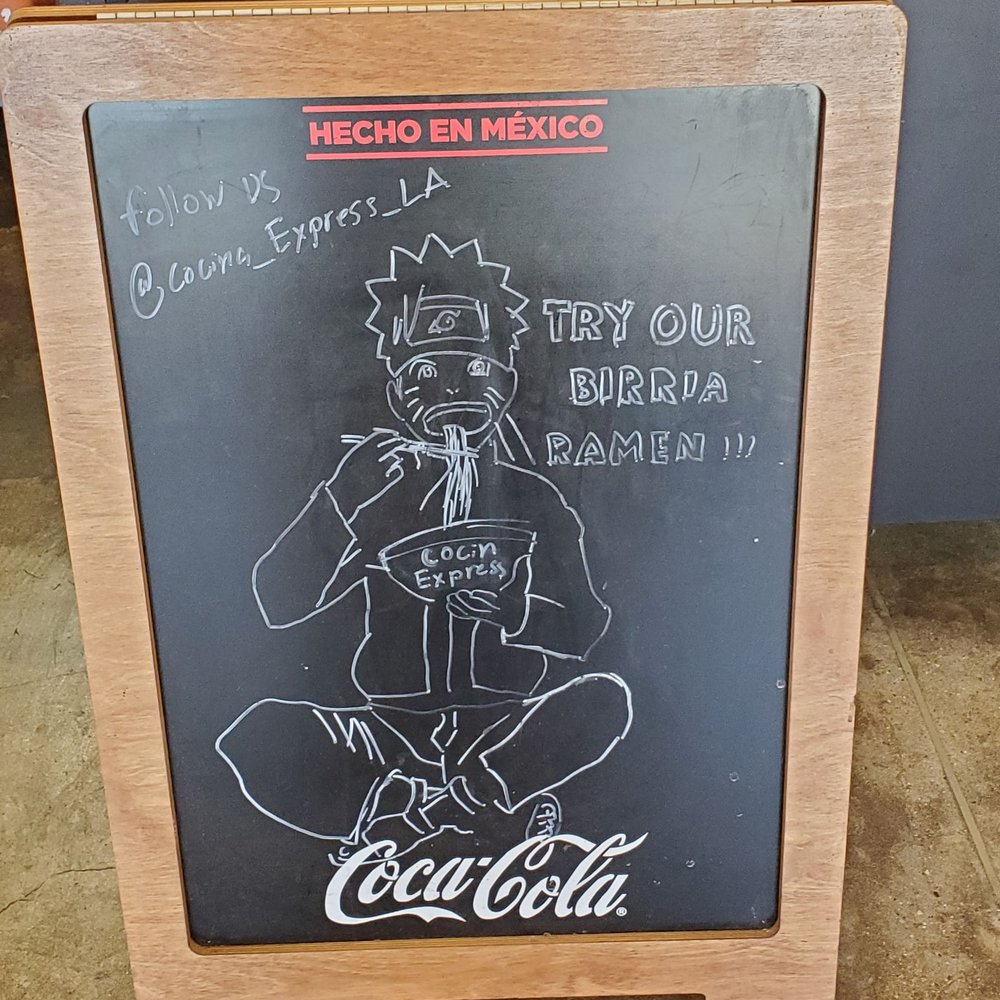 HECHO EN MÉXICO
follow us
@cocina_Express_LA
TRY OUR
BIRRIA
RAMEN !!!
COCIN
Express
Coca-Cola®